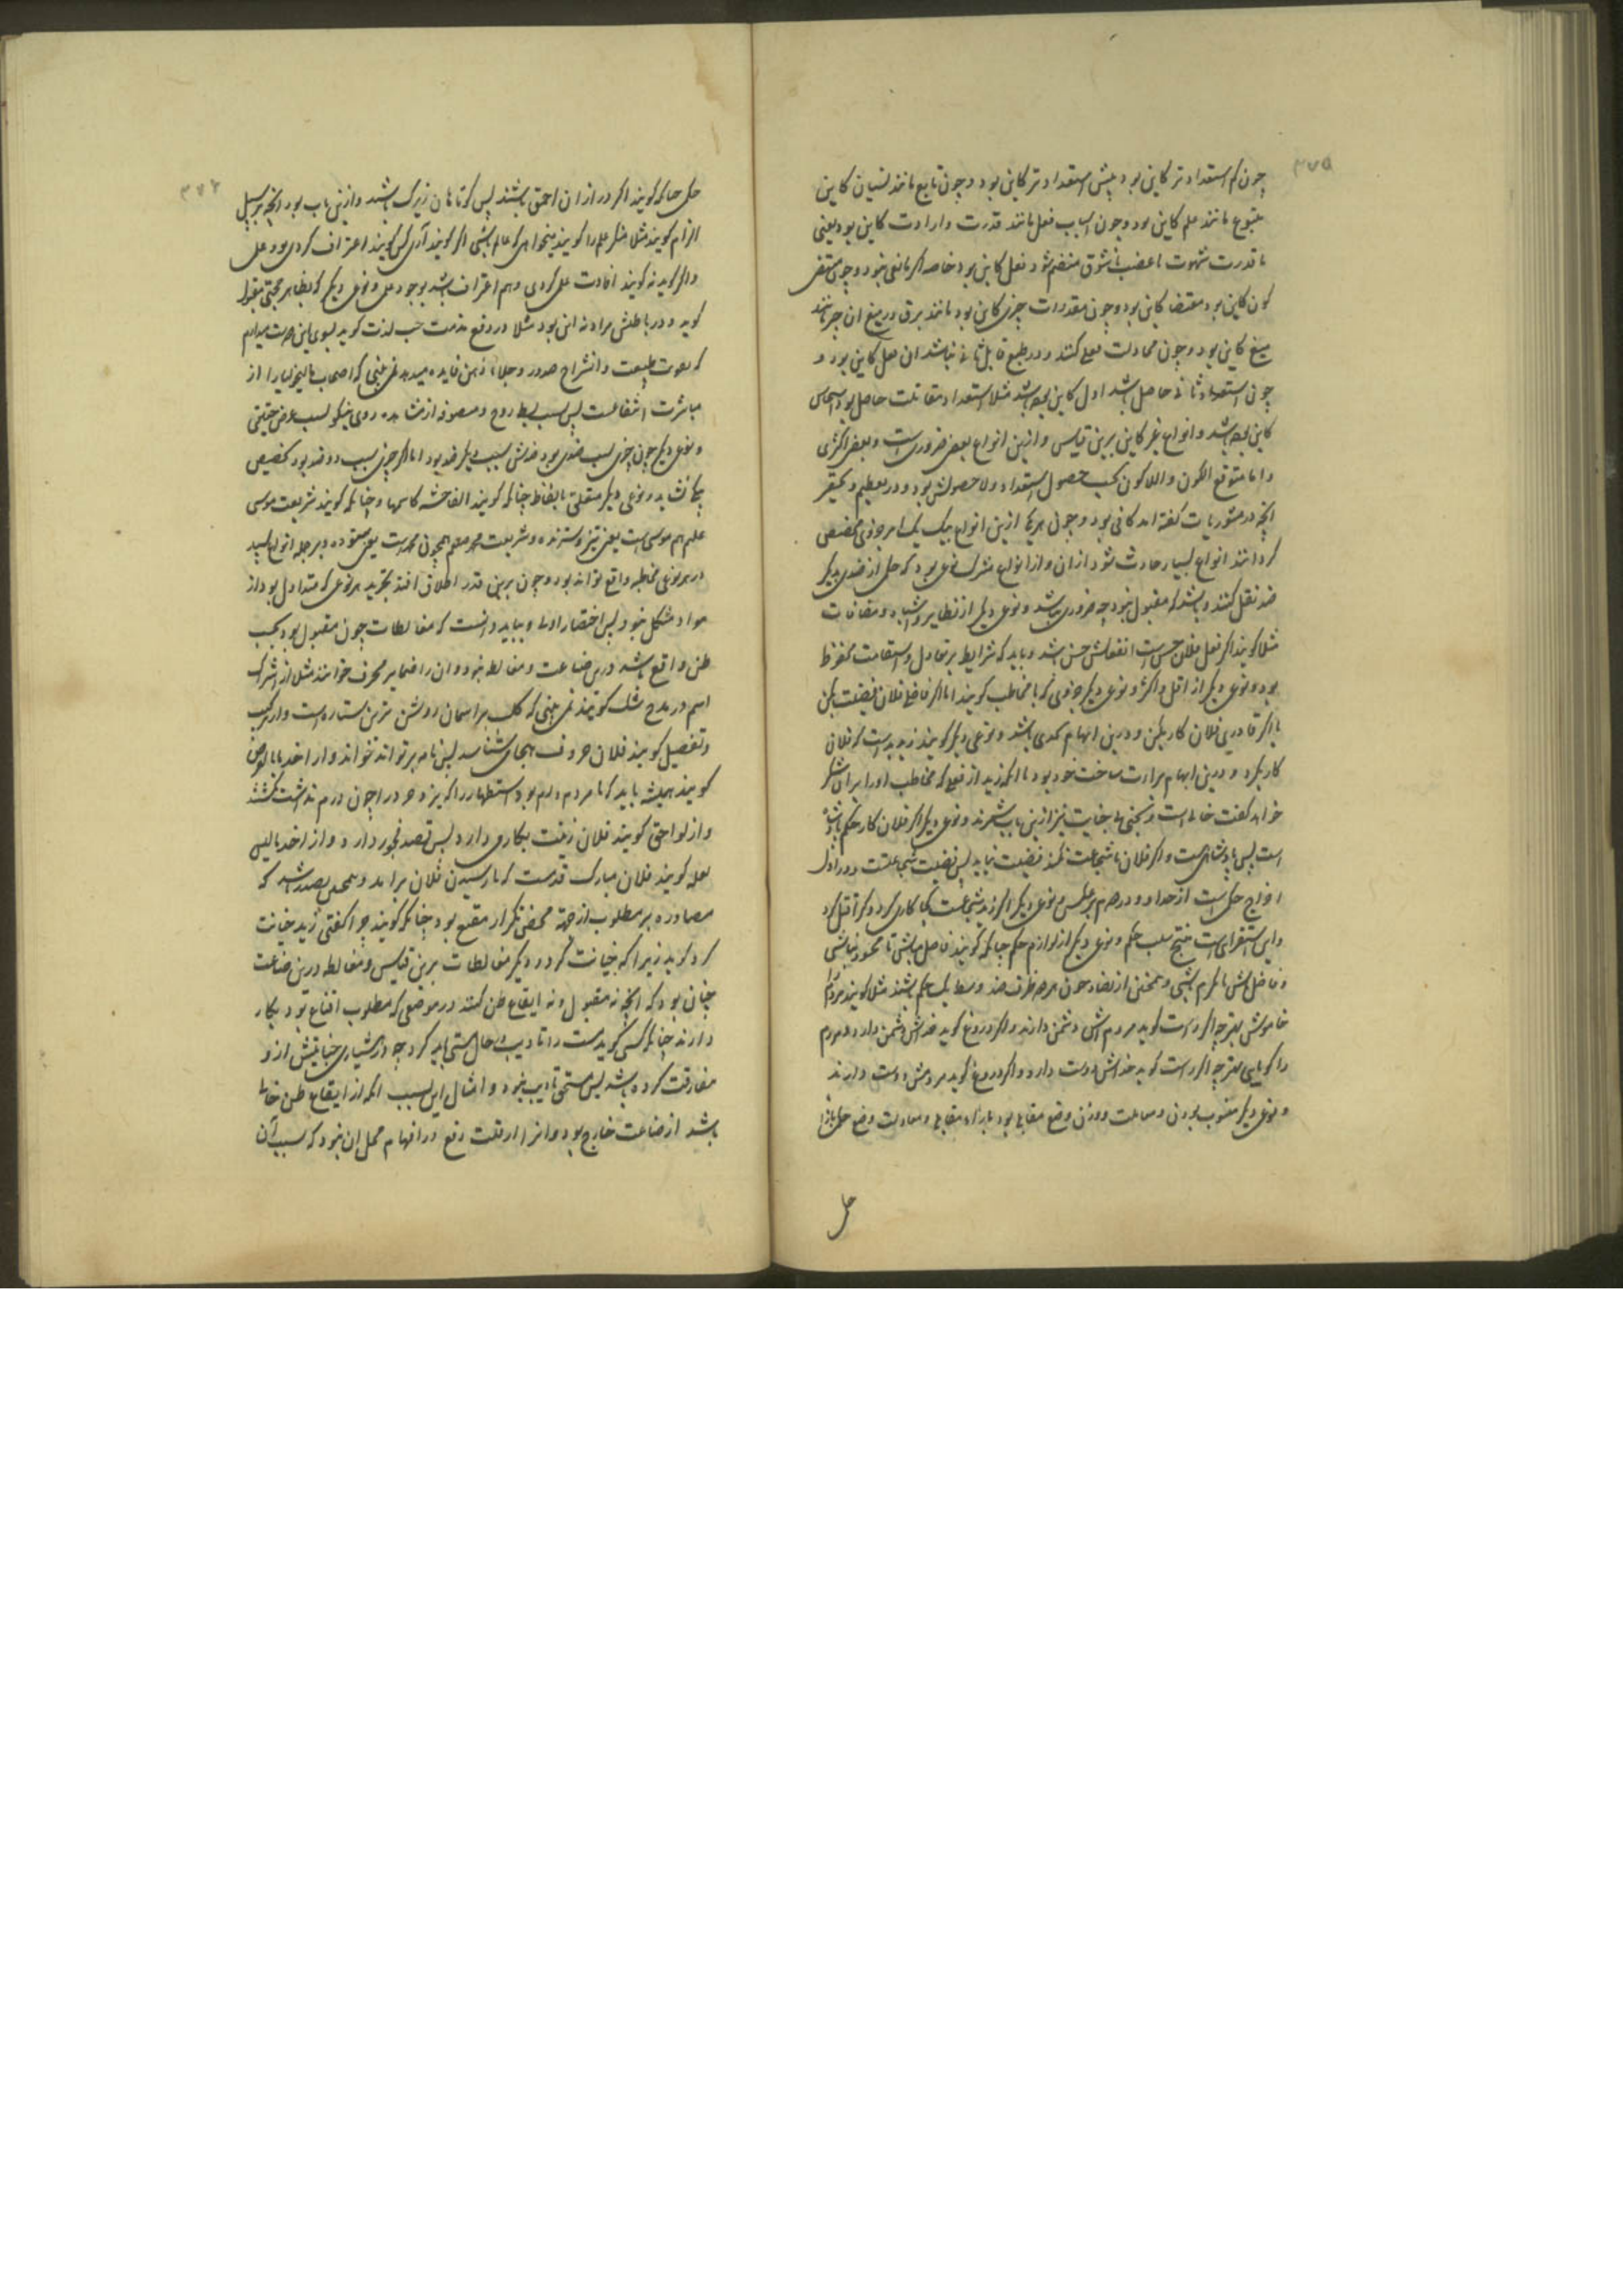 ۳۷۵
چون کم استعدادتر کاین بود بیش استعدادتر کاین بود و چون تابع مانند نسیان کاین
متبوع مانند علم کاین بود و چون اسباب فعل مانند قدرت و ارادت کاین بود یعنی
با قدرت شهوت یا غضب یا شوق منضم شود فعل کاین بود خاصه اکر مانعی نبود و چون مقتضی
کون کاین بود مقتضا کاین بود و چون مقدرات چیزی کاین بود مانند برق و میغ ان چیز مانند
میغ کاین بود و چون محاولت فعلی کنند و در طبع قابل ثانی نباشد ان فعل کاین بود و
چون استعداد ثانی حاصل باشد اول کاین بوده باشد مثلا استعداد مقاتلت حاصل بود
کاین بوده باشد و انواع غیر کاین برین قیاس و ازین انواع بعضی ضروریست و بعضی اکثری
و اما متوقع الکون و اللاکون بحسب حصول استعداد و لا حصولش بود و در تعظیم و تحقیر
انچه در مشوریات کفته اند کافی بود و چون هر یک ازین انواع بیک یک امر جزوی مخصص
کردانند انواع بسیار حادث شود ازان و از انواع مشترک نوعی بود که حکم از ضدی بدیکر
ضد نقل کنند و باشد که مقبول نبود چه ضروری نباشد و نوعی دیکر از نظایر و اشباه و مضافات
مثلا کویند اکر فعل فلان حسن است انفعالش حسن باشد و باید که شرایط بر تعادل و استقامت محفوظ
بود و نوعی دیکر از اقل و اکثر و نوعی دیکر جزوی که با مخاطب کویند اما اکر فاضلی فلان فضیلت بکن
یا اکر قادری فلان کار بکن و درین ایهام تحدی باشد و نوعی دیکر کویند زید بدیست که فلان
کار نکرد و درین ایهام براءت ساحت خود بود با انکه زید از فعلی که مخاطب او را بران منکر
خواند کفت خالی است و نوعی دیکر اکر فلان کار حکم پادشاه
است پس پادشاهیست و اکر فلان با شجاعت نکند فضیلت نیابد پس فضیلت شجاعتست و در اول
اخراج حکم است از حد و در دوم بر عکس و نوعی دیکر اکر زید شجاعت بکار کاری کرد و عمرو کرد
و این استقراییست منتج سلب حکم و نوعی دیکر از لوازم حکم چنانکه کویند فاضل مباش تا محسود نباشی
و فاضل باش تا مکرم باشی و همچنین از تضاد چون هر دو طرف ضد وسط یک حکم باشند مثلا کویند مردم را
خاموشی بهتر چه اکر راست کوید مردم اش دشمن دارند و اکر دروغ کوید خدااش دشمن دارد و مردم
را کویایی بهتر چه اکر راست کوید خدااش دوست دارد و اکر دروغ کوید مردمش دوست دارند
و نوعی دیکر منسوب بوزن و معادلت و وزن وضع مقابلی بود بازاء مقابلی و معادلت وضع حکمی بازاء
حکمی
حکمی چنانکه کویند اکر درازان احمق باشند پس کوتاهان زیرک باشند و ازین باب بود انچه بر سبیل
الزام کویند مثلا منکر علم را کویند میخواهی که عالم باشی اکر کویند آری کویند اعتراف کردی بوجود علم
و اکر کوید نه کویند افادت علمی کردی و هم اعتراف باشد بوجود علم و نوعی دیکر که بظاهر حجتی مقبول
کوید و در باطنش مراد نه این بود مثلا در دفع مذمت حب لذت کوید
که تقویت طبیعت و انشراح صدر و جلاء ذهن فایده میدهد نمی بینی که اصحاب مالیخولیا را از
مباشرت انتفاعست پس بسبب بسط روح و مصروف از مشاهده روی نیکو نه بسبب غرض حقیقی
و نوعی دیکر چون چیزی بسبب ضدی بود ضدش بسبب دیکر ضد بود اما اکر چیزی بسبب دو ضد بود تخصیص
بیکی نشاید و نوعی دیکر متعلق بالفاظ چنانکه کویند الفاحشه کاسمها و چنانکه کویند شریعت موسی
علم هم موسی است یعنی تیز و سترنده و شریعت محمد صلعم همچون محمدست یعنی ستوده و بر جمله انواع بسیار
در هر نوعی مخاطبه واقع تواند بود و چون برین قدر اطلاق افتد تجرید هر نوعی که متداول بود از
مواد مشکل نبود پس اختصار اولی و بباید دانست که مغالطات چون مقبول بود بحسب
ظن واقع باشد درین صناعت و مغالطه نبود و ان را ضمایر محرف خوانند مثلا از اشتراک
اسم در مدح سک کویند نمی بینی که کلب بر اسمان روشن ترین ستاره است و از ترکیب
و تفصیل کویند فلان حروف هجا می شناسد پس نامه بر تواند خواند و از اخذ ما بالعرض
کویند همیشه باید که با مردم درم بود استظهار را که پیزد خرد را چون درم نداشت بکشتند
و از لواحق کویند فلان زینت بکار می دارد پس قصد فجور دارد و از اخذ ما لیس
بعلة کویند فلان مبارک قدمست که با رسیدن فلان برامد و همچنین باشد که
مصادره بر مطلوب از جهة محض تکرار مقنع بود چنانکه کویند چرا کفتی زید خیانت
کرد کوید زیرا که خیانت کرد و دیکر مغالطات برین قیاس و مغالطه درین صناعت
چنان بود که انچه نه مقبول و نه ایقاع ظن کند در موضعی که مطلوب اقناع بود بکار
دارند چنانکه کسی کوید مست را تادیب در حال مستی باید کرد چه در هشیاری جنایتش از و
مفارقت کرده باشد پس مستحق تادیب نبود و امثال این بسبب انکه از ایقاع ظن خالی
باشد از صناعت خارج بود و انرا وقت رفع در افهام محل ان نبود که بسبب آن